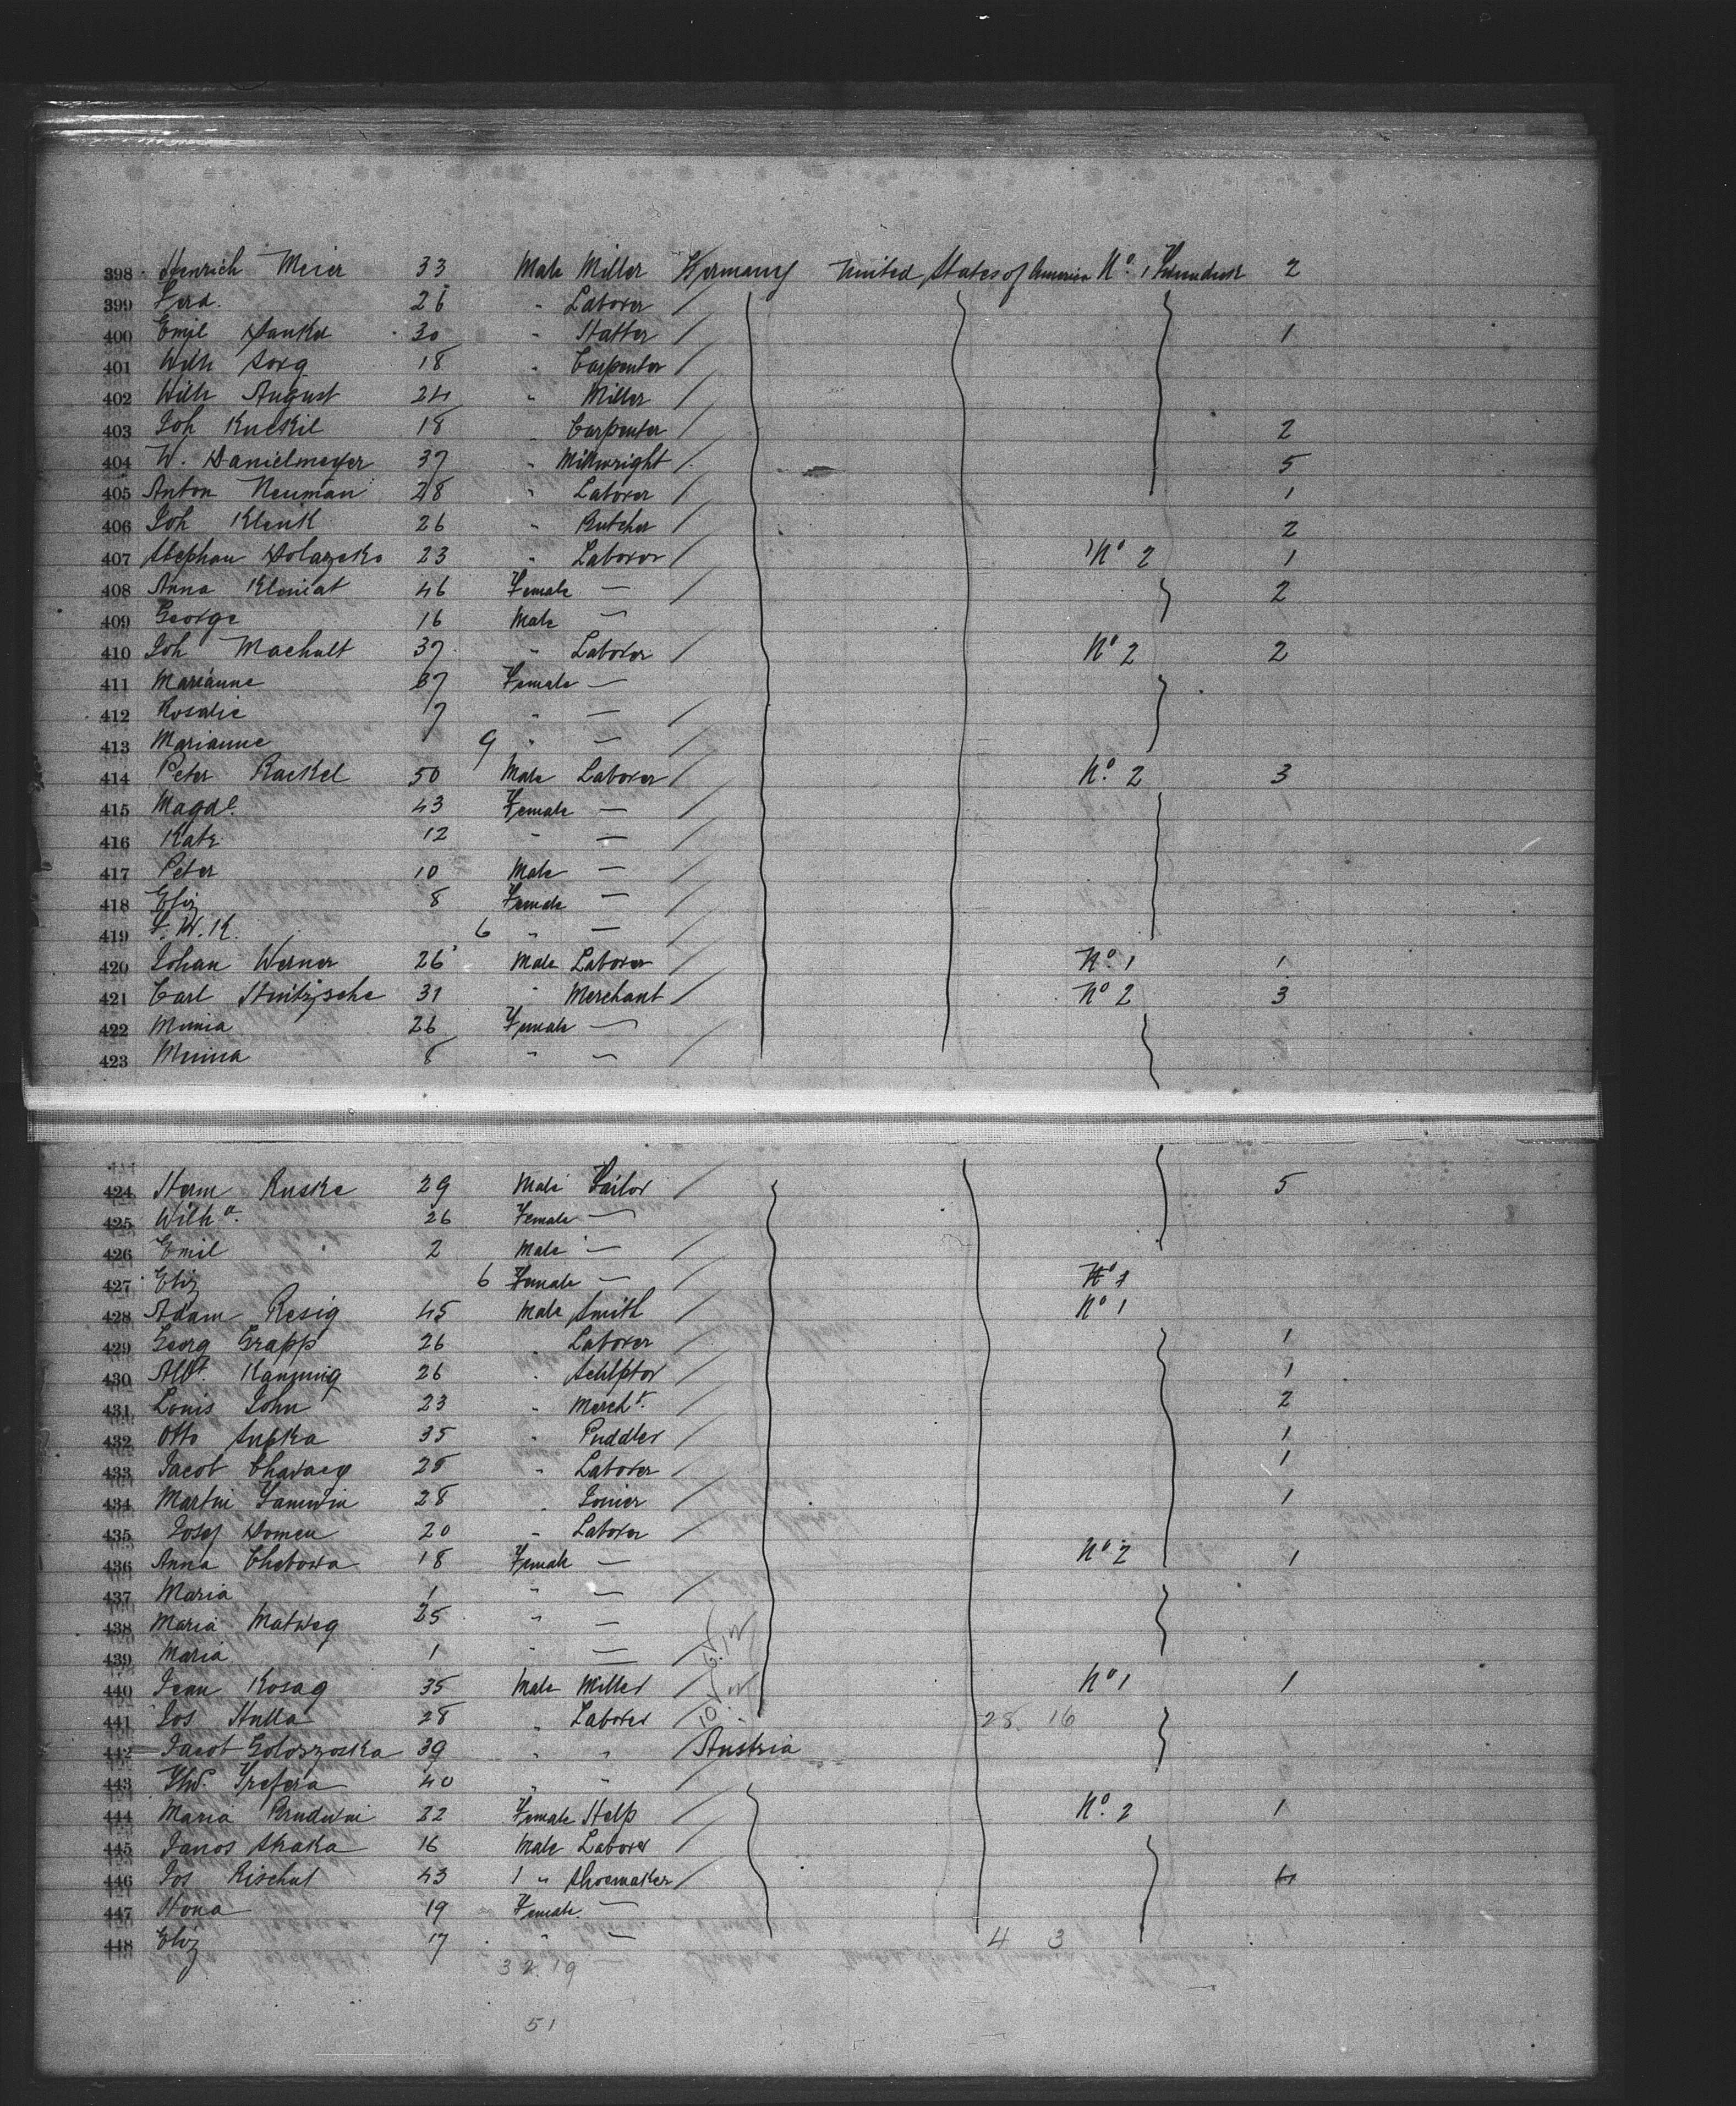 398 Heinrich Meier 33 Male Miller Germany United States of America No. 1 2
399 Ferd. 26 " Laborer /
400 Emil 30 " Hatter / 1
401 Wilh Sorg 18 " Carpenter /
402 Wilh August 24 " Miller /
403 Joh 18 " Carpenter / 2
404 W. Danielmeyer 37 " Millwright / 5
405 Anton Neuman 28 " Laborer / 1
406 Joh Klenk 26 " Butcher / 2
407 Stephan 23 " Laborer / No 2 1
408 Anna 46 Female — / 2
409 George 16 Male —
410 Joh Machult 37 " Laborer / No 2 2
411 Marianne 37 Female —
412 Rosalie 17 " — /
413 Marianne 9 " — /
414 Peter Rackel 50 Male Laborer / No. 2 3
415 Magde. 43 Female — /
416 Kate 12 " — /
417 Peter 10 Male — /
418 Eliz 8 Female — /
419 F. W. K. 6 " — /
420 Johan Werner 26 Male Laborer / No. 1 1
421 Carl Hintzsche 31 " Merchant / No 2 3
422 Minna 26 Female — /
423 Minna 8 " — /
424 Herm Ruske 29 Male Tailor / 5
425 Wilha. 26 Female —
426 Emil 2 Male — /
427 Eliz 6 Female — /
428 Adam Resig 45 Male Smith / No 1
429 Georg Grapp 26 " Laborer / 1
430 Albt. 26 " Sculptor / 1
431 Louis John 23 " Mercht. / 2
432 Otto Supka 35 " Puddler / 1
433 Jacob 25 " Laborer / 1
434 Martin 28 " Joiner / 1
435 Josef Domen 20 " Laborer /
436 Anna 18 Female — No 2 1
437 Maria 1 " — /
438 Maria Matweg 25 " —
439 Maria 1 " — /
440 Jean Kosag 35 Male Miller / No 1 1
441 Jos Hulla 28 " Laborer / 28. 16
442 Jacob 39 " " / Austria
443 40 " " /
444 Maria 22 Female Help / No. 2 1
445 Janos 16 Male Laborer /
446 Jos 43 1 " Shoemaker /
447 Ilona 19 Female —
448 Eliz 17 " — 4 3
32. 19
51